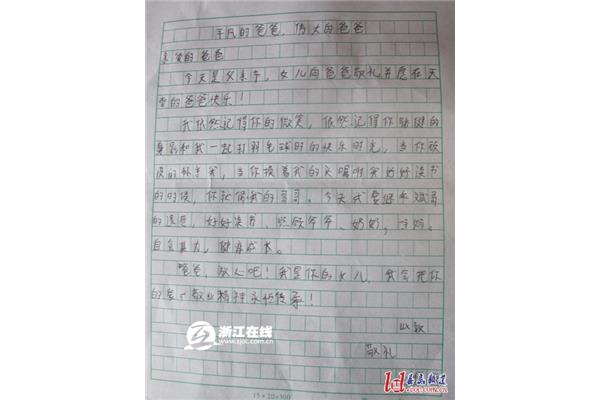 平凡的爸爸，伟大的爸爸
亲爱的爸爸
今天是父亲节，女儿向爸爸敬礼并愿在天
堂的爸爸快乐！
我依然记得你的微笑，依然记得你矫健的
身影和我一起打羽毛球时的快乐时光，当你
的怀手我，当你摸着我的头嘱咐我好好读书
的时候，你就像我的哥哥。今天我要继承
的遗志，好好读书、照顾爷爷、奶奶、妈妈。
自食其力，健康成长。
爸爸，放心吧！我是你的女儿，我会把你
的爱，敬业精神永远传承！
此致
敬礼
浙江在线
www.zjol.com.cn
15×20=300